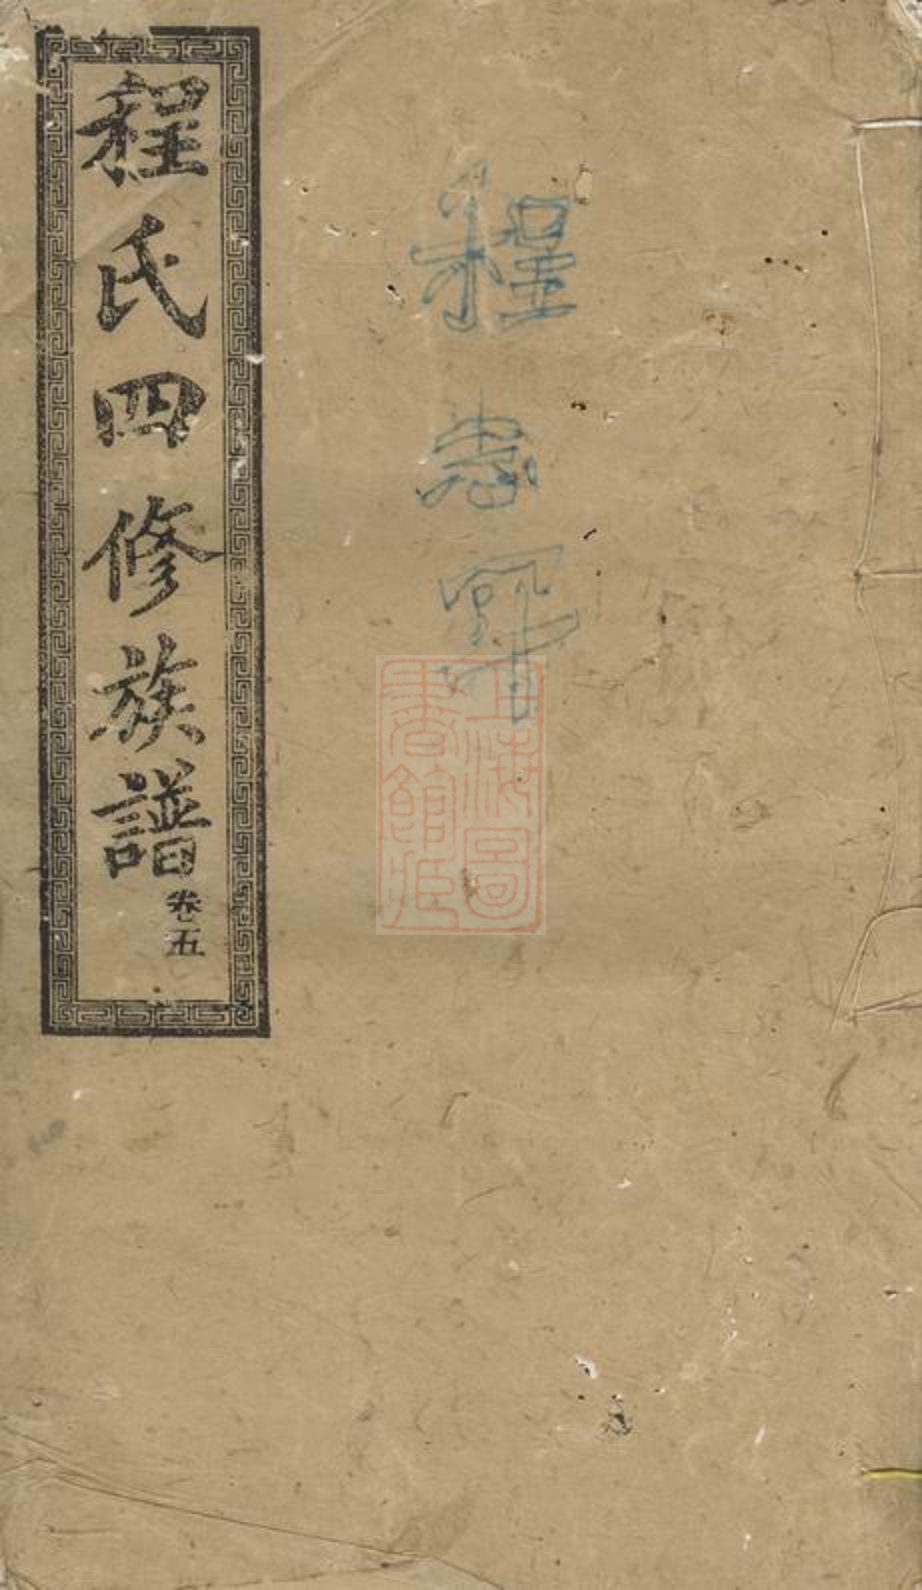 程氏四修族譜
卷五
程志軍
上海圖書館藏